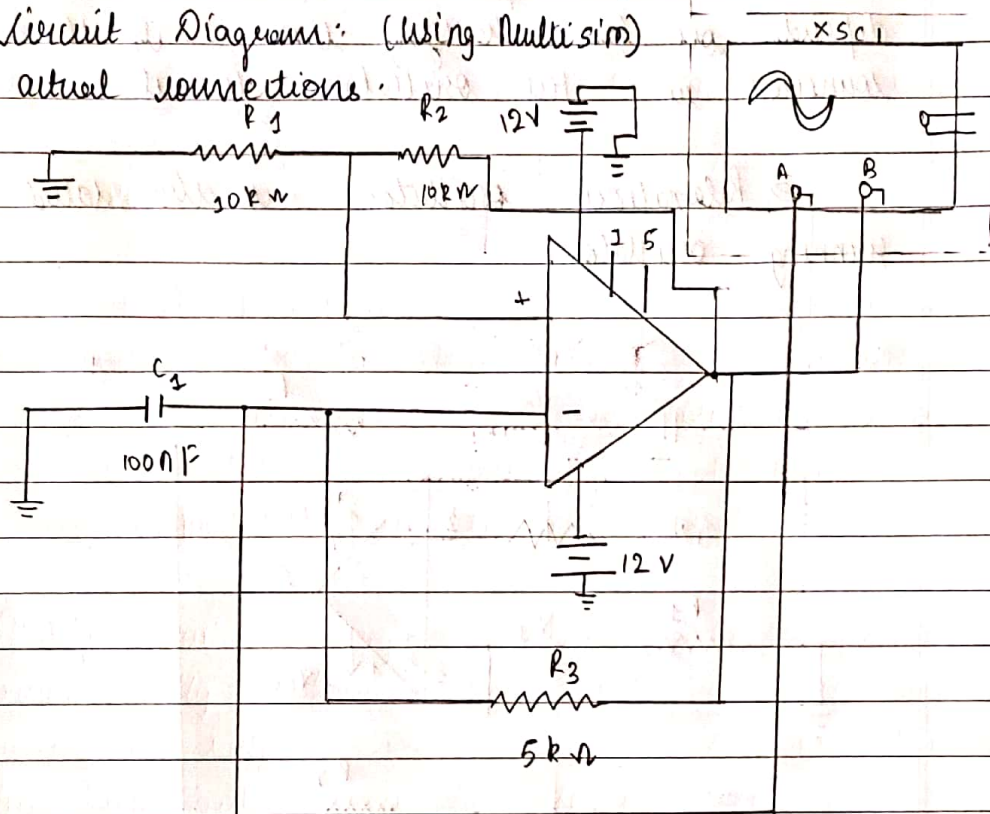 Circuit Diagram: (Using Multisim)
actual connections.
XSC1
R1
R2
12V
10kΩ
10kΩ
A
B
1 5
+
C1
-
100nF
12 V
R3
5kΩ